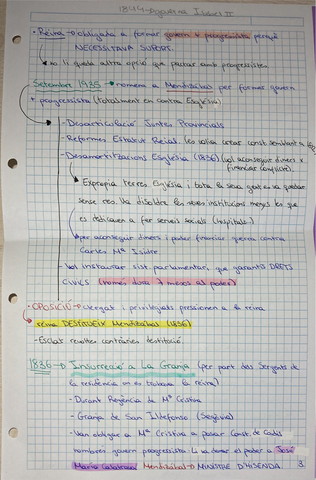 1844 → Isabel II
· Reina → obligada a formar govern + progressista perquè
NECESSITAVA SUPORT.
no li queda altra opció que pactar amb progressistes.
Setembre 1935 → nomena a Mendizábal per formar govern
+ progressista (totalment en contra Església)
- Desarticulació Juntes Provincials
- Reformes Estatut Reial. (es volia crear const. semblant a
- Desamortitzacions Església (1836) (vol aconseguir diners x
financiar conflicte)
Expropia terres Església i tota la seva gent es va quedar
sense res. Va disoldre les seves institucions menys les que
es dedicaven a fer serveis socials (hospitals..)
per aconseguir diners i poder financiar guerra contra
Carles Mª Isidre
- Vol instaurar sist. parlamentari, que garantís DRETS
CIVILS (només dura 7 mesos al poder)
· OPOSICIÓ → clergat i privilegiats pressionen a la reina
reina DESTITUEIX Mendizábal (1836)
- Esclat revoltes contràries destitució.
1836 → Insurrecció a La Granja (per part dels Sergents de
la residència on es trobava la reina)
- Durant Regència de Mª Cristina
- Granja de San Ildefonso (Segòvia)
- Van obligar a Mª Cristina a posar Const. de Cadis
nombres govern progressista. Li va donar el poder a José
María Calatrava Mendizábal → MINISTRE D'HISENDA
3